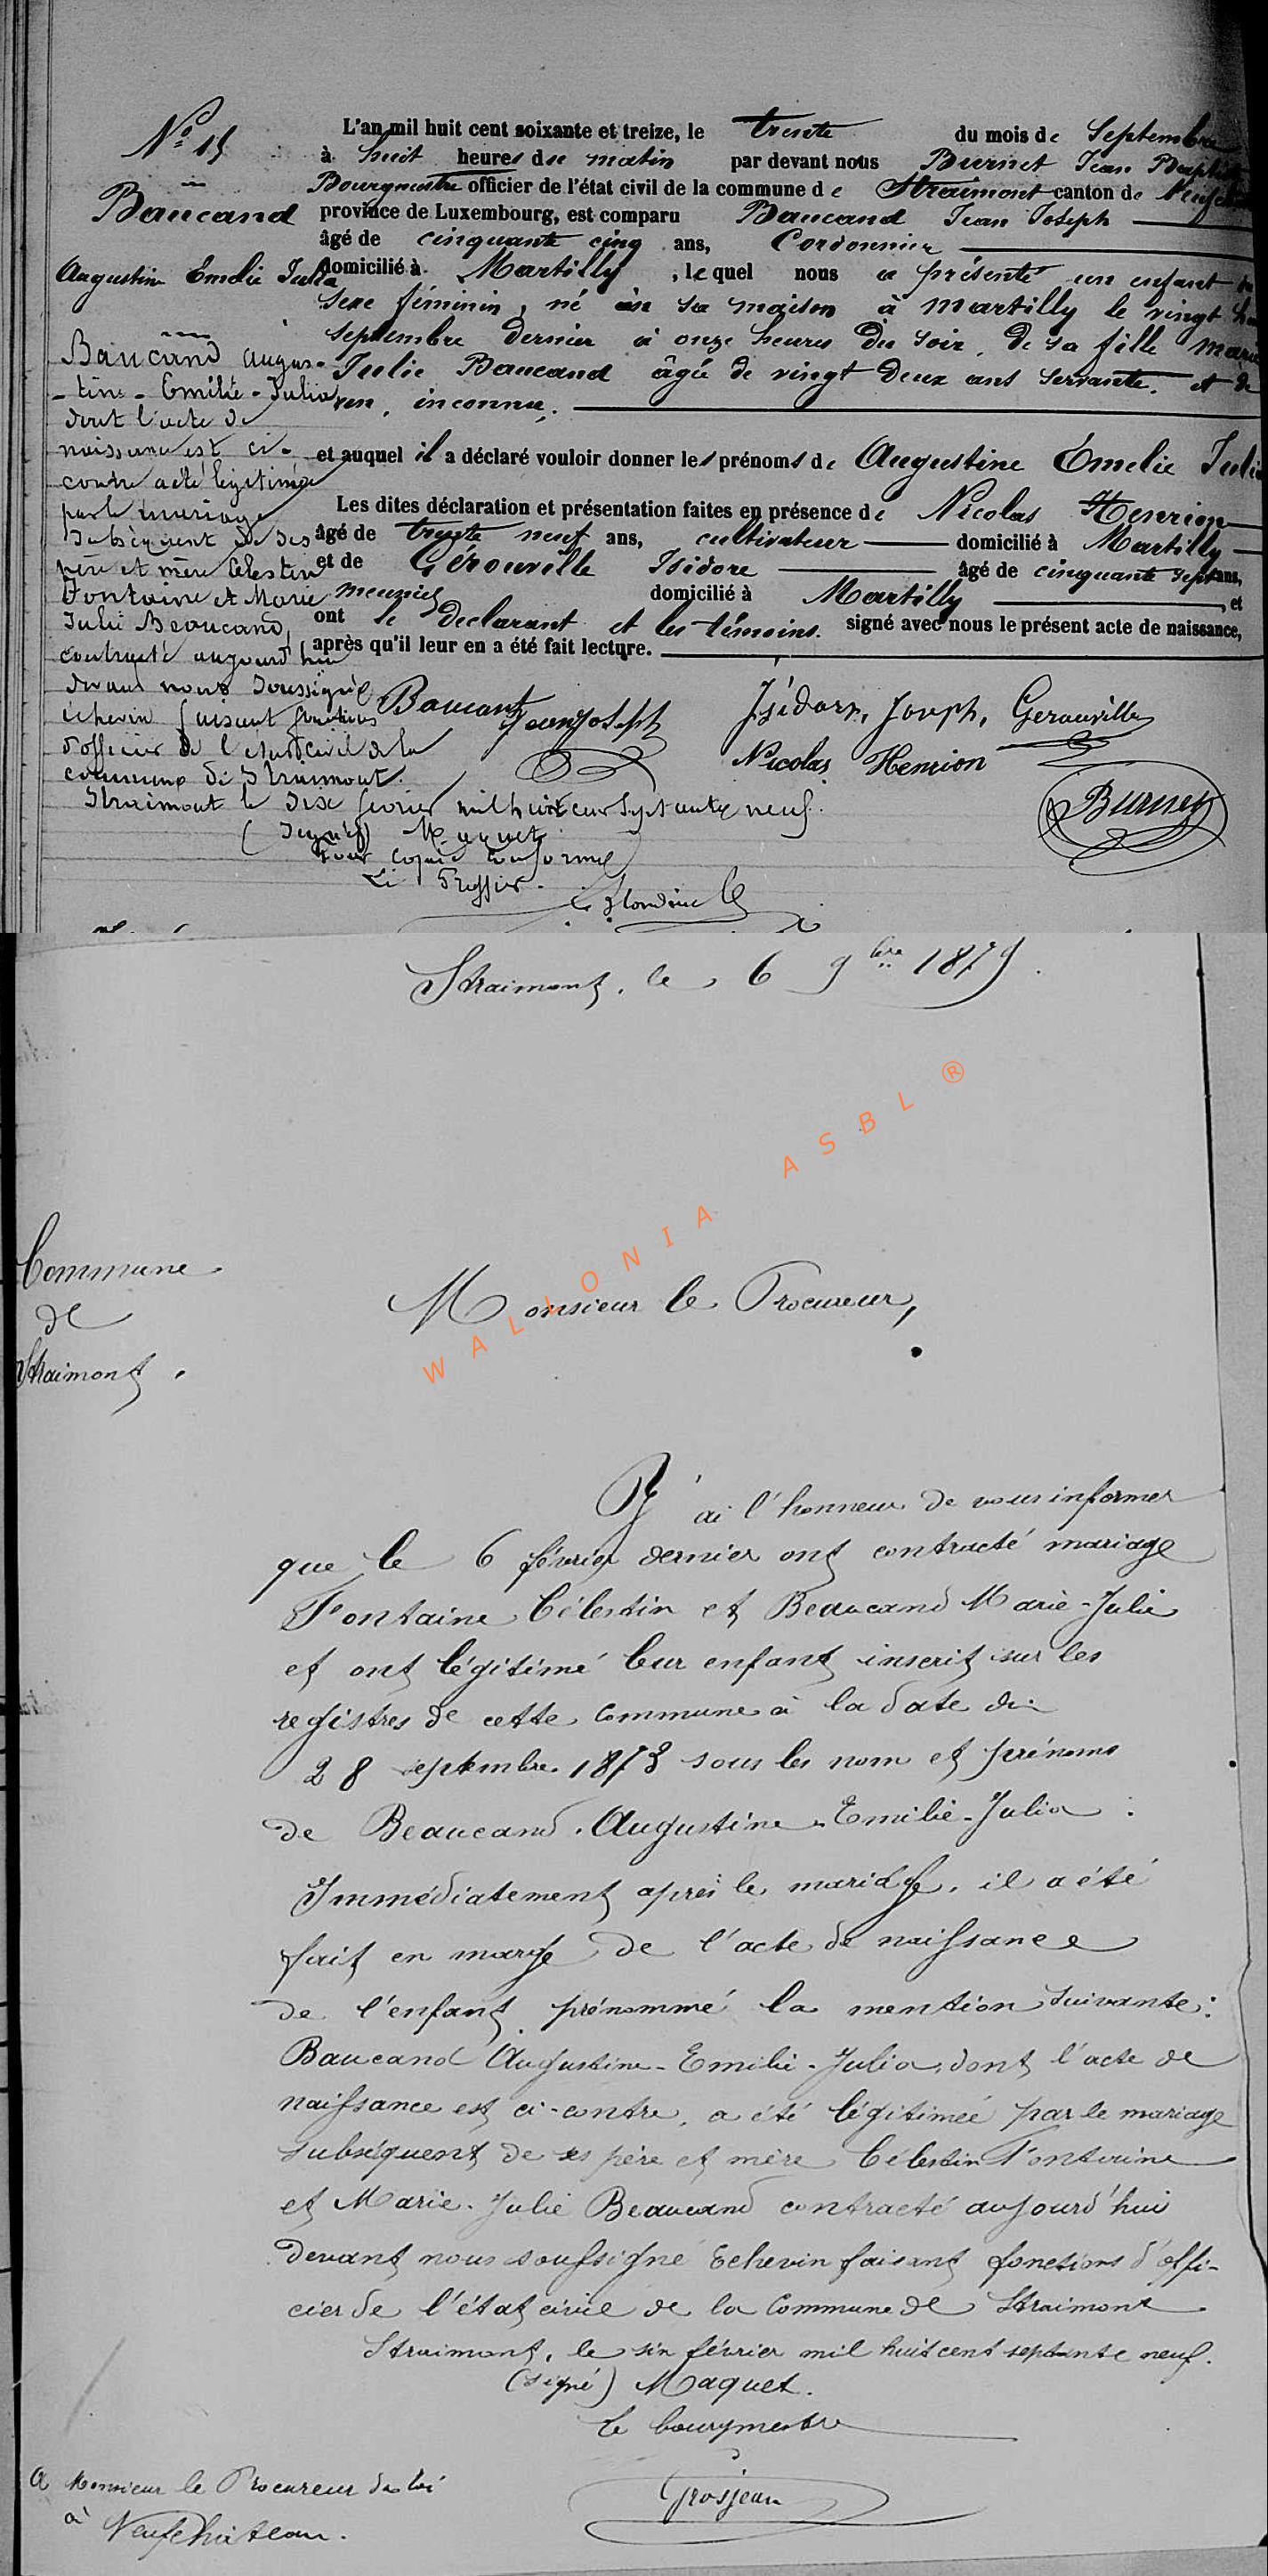 N° 15
Baucand
Augustine Émelie Julia
L'an mil huit cent soixante et treize, le trente du mois de Septembre
à huit heures du matin par devant nous Burnet Jean Baptiste
Bourgmestre officier de l'état civil de la commune de Straimont canton de Neufch
province de Luxembourg, est comparu Baucand Jean Joseph
âgé de cinquante cinq ans, Cordonnier
domicilié à Martilly, lequel nous a présenté un enfant du
sexe féminin, né en sa maison à Martilly le vingt huit
septembre dernier à onze heures du soir, de sa fille Marie
Julie Baucand âgée de vingt deux ans servante, et de
inconnu.
et auquel il a déclaré vouloir donner les prénoms de Augustine Émelie Julia
Les dites déclaration et présentation faites en présence de Nicolas Henrion
âgé de trente neuf ans, cultivateur domicilié à Martilly
et de Gérouville Isidore âgé de cinquante sept ans,
meunier domicilié à Martilly, et
ont le déclarant et les témoins signé avec nous le présent acte de naissance,
après qu'il leur en a été fait lecture.
Baucand Jean Joseph
Isidore, Joseph, Gerouville
Nicolas Henrion
Burnet
Baucand Augus-
-tine-Emilie-Julia
dont l'acte de
naissance est ci-
contre a été légitimée
par le mariage
subséquent de ses
père et mère Célestin
Fontaine et Marie
Julie Beaucand,
contracté aujourd'hui
devant nous soussigné
échevin faisant fonctions
d'officier de l'état civil de la
commune de Straimont.
Straimont le six février mil huit cent septante neuf.
(signé) Maquet
Pour copie conforme
Le Greffier.
Straimont, le 6 9bre 1879.
Commune
de
Straimont.
Monsieur le Procureur,
WALLONIA ASBL ®
J'ai l'honneur de vous informer
que le 6 février dernier ont contracté mariage
Fontaine Célestin et Beaucand Marie-Julie
et ont légitimé leur enfant inscrit sur les
registres de cette Commune à la date du
28 septembre 1873 sous les nom et prénoms
de Beaucand Augustine-Emilie-Julia.
Immédiatement après le mariage, il a été
fait en marge de l'acte de naissance
de l'enfant prénommé la mention suivante:
Baucand Augustine-Emilie-Julia, dont l'acte de
naissance est ci-contre, a été légitimée par le mariage
subséquent de ses père et mère Célestin Fontaine
et Marie-Julie Beaucand contracté aujourd'hui
devant nous soussigné Echevin faisant fonctions d'offi-
cier de l'état civil de la Commune de Straimont
Straimont, le six février mil huit cent septante neuf.
(signé) Maquet.
Le bourgmestre
Grosjean
A Monsieur le Procureur du Roi
à Neufchâteau.